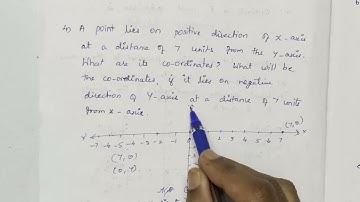 4) A point lies on positive direction of x-axis
at a distance of 7 units from the y-axis.
What are its co-ordinates? What will be
the co-ordinates, if it lies on negative
direction of Y-axis at a distance of 7 units
from x-axis.
(7,0)
-7 -6 -5 -4 -3 -2 1 2 3 4 5 6 7
(7,0)